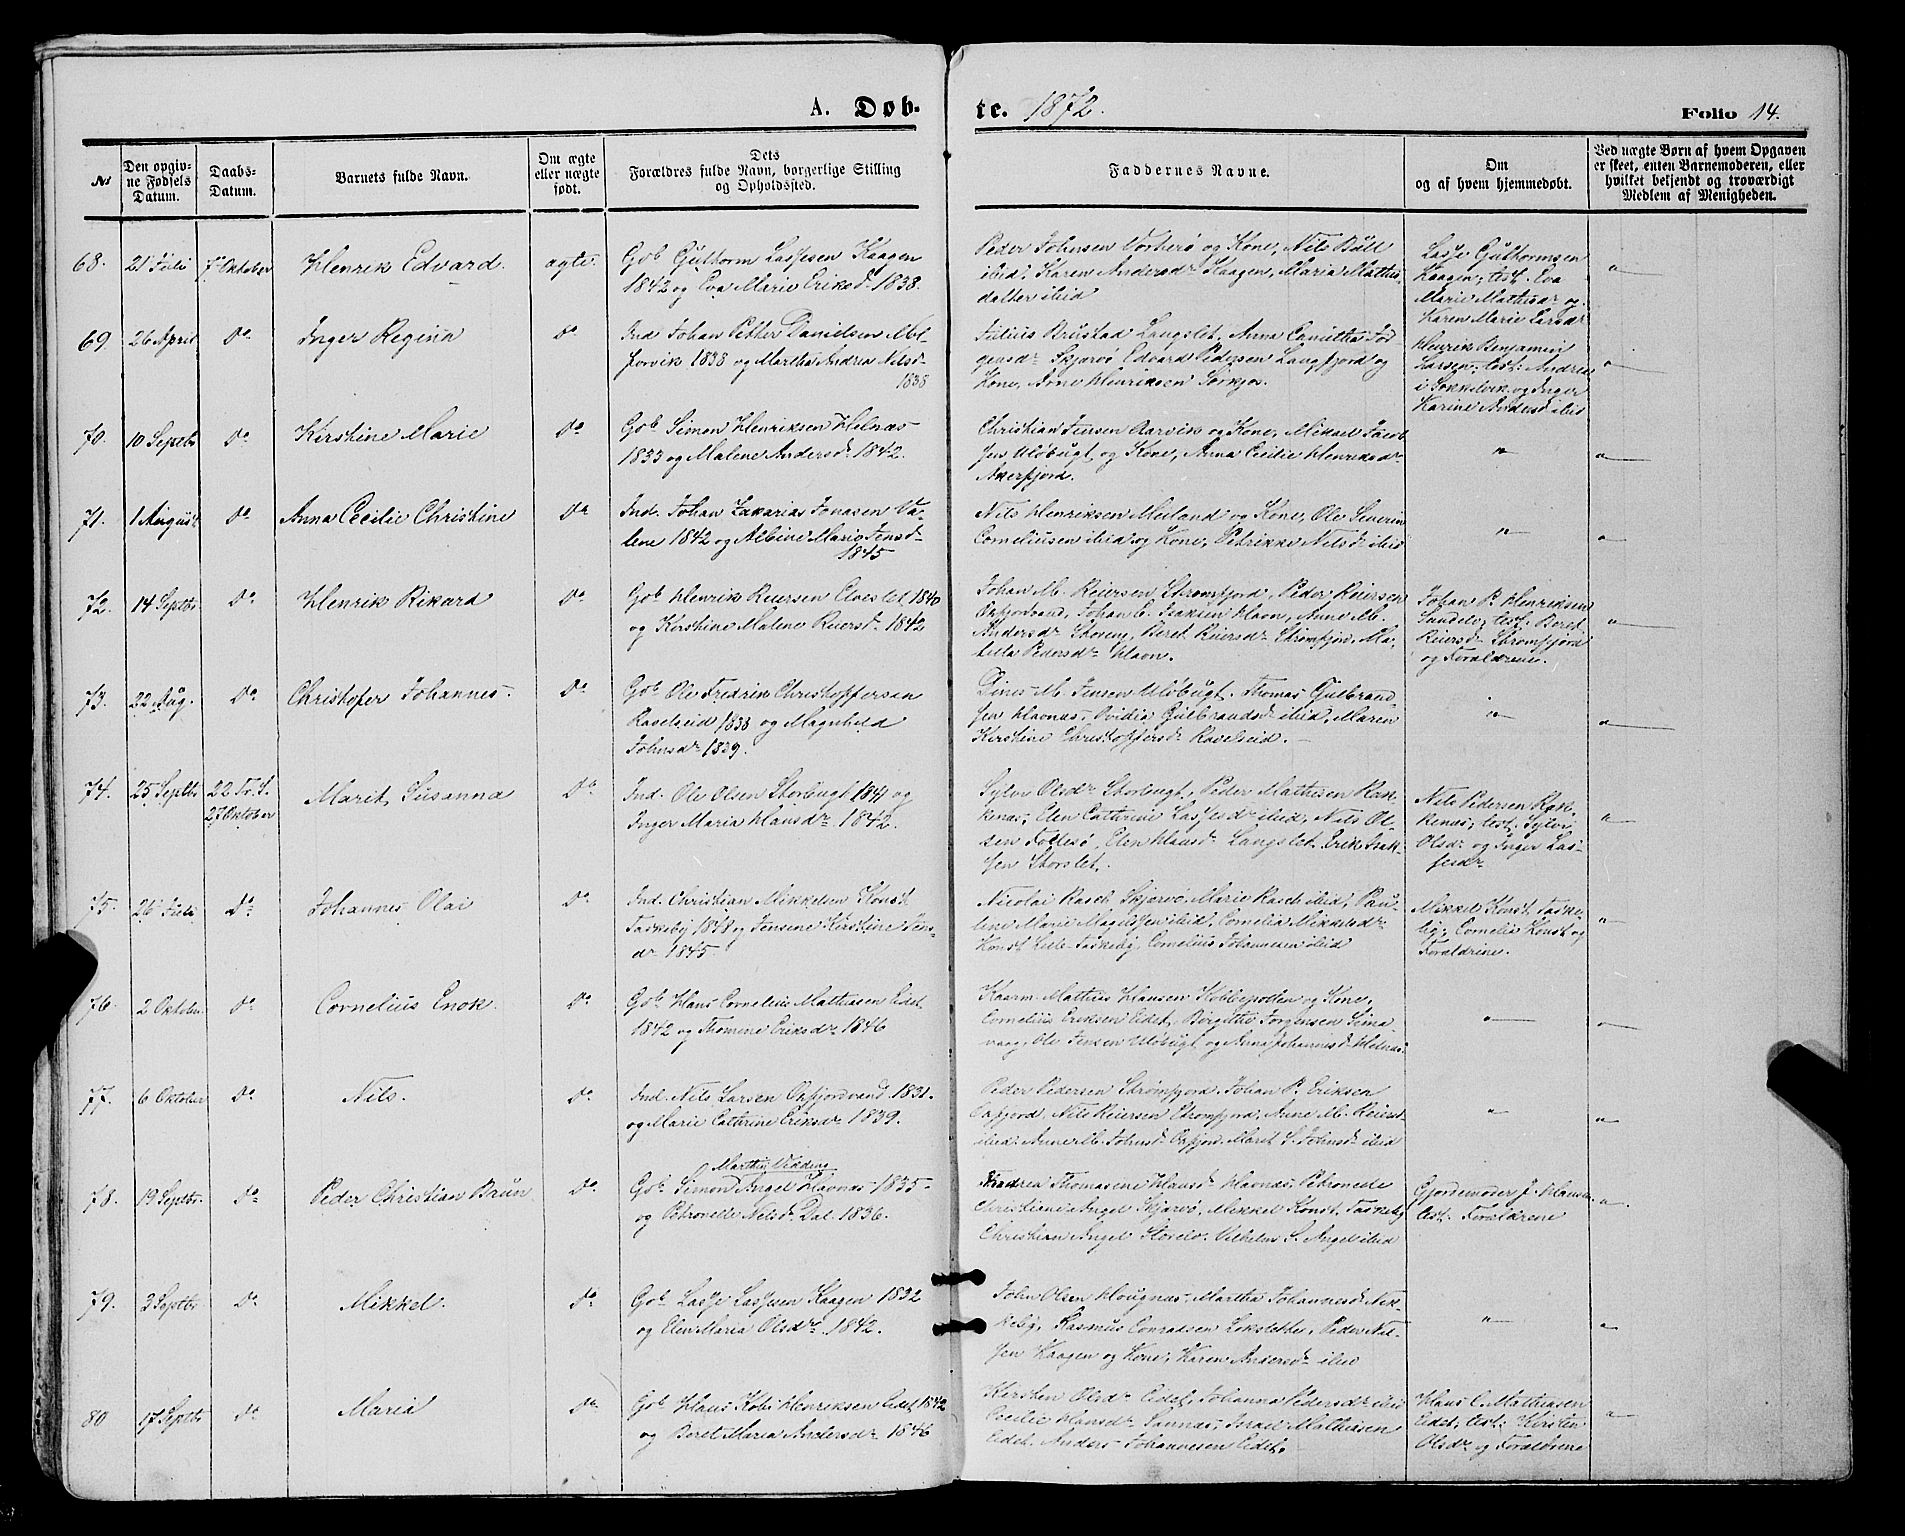 A. Døb-
te. 1872.
Folio 14.
No
Den opgiv-
ne Fødsels
Datum.
Daabs-
Datum.
Barnets fulde Navn.
Om ægte
eller uægte
født.
Dets
Forældres fulde Navn, borgerlige Stilling
og Opholdssted.
Faddernes Navne.
Om
og af hvem hjemmedøbt.
Ved uægte Børn af hvem Opgaven
er skeet, enten Barnemoderen, eller
hvilket bekjendt og troværdigt
Medlem af Menigheden.
68. 21 Juli 7 Oktober Henrik Edvard. ægte.
Gb Guthorm Lassesen Kaagen
1842 og Eva Marie Eriksdr 1838.
Peder Johnsen Vorterø og Kone, Nils
ibid, Karen Andersdr Kaagen, Maria Mathis-
datter ibid
Lasse Guthormsen
Kaagen, test. Eva
Marie Mathisdr og
Karen Marie Larsdr
69. 26 April Do Inger Regina Do
Ind Johan Petter Danielsen
1838 og Martha Andrea Nilsdr
1838
Julius Brustad Langslet, Anna
Skjervø Edvard Pedersen Langfjord og
Kone, Arne Henriksen Sørkjos.
Henrik Benjamin
Larsen, test: Andreas
i Sokkelvik og Inger
Karine Andersdr ibid
70. 10 Septbr Do Kirstine Marie Do
Gb Simon Henriksen Helnæs
1833 og Malene Andersdr 1842.
Christian Jensen Aarvik og Kone, Mikael Jacob-
sen Uløbugt og Kone, Anna Cecilie Henriksdr
71. 1 August Do Anna Cecilie Christine Do
Ind. Johan Zakarias Jonasen
1842 og Albine Marie Jensdr
1845
Nils Henriksen Meiland og Kone, Ole Severin
Corneliusen ibid og Kone, Petrikke Nilsdr ibid
72. 14 Septbr Do Henrik Rikard Do
Gb Henrik Reiersen Elveslet 1840
og Kirstine Malene Reiersdr 1842
Johan M. Reiersen Strømfjord, Peder Reiersen
Oxfjordvand, Johan E. Isaksen Havn, Anne M.
Andersdr Storeng, Beret Reiersdr Strømfjord, Ma-
Pedersdr Havn.
Johan P. Henriksen
test. Beret
Reiersdr Strømfjord
og Forældrene.
73. 22 Aug. Do Christofer Johannes. Do
Gb Ole Fredrik Christoffersen
Ravelseid 1838 og Magnhild
Johnsdr 1839.
Dines M. Jensen Uløbugt, Thomas Gulbrand-
sen Havnæs, Ovidia Gulbrandsdr ibid, Maren
Kirstine Christoffersdr Ravelseid.
74. 25 Septbr 22 Tr. S.
27 Oktober Marit Susanna Do
Ind. Ole Olsen Storbugt 1841 og
Inger Maria Hansdr 1842.
Sylvi Olsdr Storbugt, Peder Mathisen Rak-
kenæs, Elen Cathrine Lassesdr ibid, Nils Ol-
sen Follesø, Elen Hansdr Langslet, Erik Isak-
sen Storslet.
Nils Pedersen Rak-
kenæs, test. Sylvi
Olsdr og Inger Las-
sesdr
75. 26 Juli Do Johannes Olai Do
Ind. Christian Mikkelsen Konst
Taskeby 1848 og Jensine Kirstine Jens-
dr 1845.
Nicolai Rasch Skjervø, Marie Rasch ibid, Pau-
line Marie ibid, Cornelia Mikkelsdr
Konst Lille-Taskeby, Cornelius Johannesen ibid
Mikkel Konst Taske-
by, Cornelia Konst og
Forældrene.
76. 2 Oktober Do Cornelius Enok. Do
Gb Hans Cornelius Mathisen Eidet
1842 og Thomine Eriksdr 1846
Kaarm. Mathis Hansen Kobbepollen og Kone,
Cornelius Eriksen Eidet, Birgithe Jørgensen Sima-
vaag, Ole Jensen Uløbugt og Anna Johannesdr Helnæs.
77. 6 Oktober Do Nils. Do
Ind. Nils Larsen Oxfjordvand 1831.
og Marie Cathrine Eriksdr 1839.
Peder Pedersen Strømfjord, Johan P. Eriksen
Oxfjord, Nils Reiersen Strømfjord, Anne M. Reiersdr
ibid, Anne M. Johnsdr Oxfjord, Marit S. Johnsdr ibid
78. 19 Septbr. Do Peder Christian Bruun Do
Marthin Vedding
Gb Simon Angel Havnæs 1835
og Petronelle Nilsdr Dal 1836.
Thomasine Hansdr Havnæs, Petronelle
Christiane Angel Skjervø, Mikkel Konst Taskeby
Christian Angel Storslet, Vilhelm S. Angel ibid
Gjordemoder J. Hansen
test. Forældrene
79. 3 Septbr Do Mikkel. Do
Gb Lasse Lassesen Kaagen 1832
og Elen Maria Olsdr 1842.
John Olsen Hougnæs, Martha Johannesdr Nik-
keby, Rasmus Conradsen Lokslette, Peder Nil-
sen Kaagen og Kone, Karen Andersdr ibid
80 17 Septbr Do Maria Do
Gb Hans Henriksen Eidet 1842
og Beret Maria Andersdr 1846
Kirsten Olsdr Eidet, Johanna Pedersdr ibid
Cecilie Hansdr Sannæs, Israel Mathiasen
Eidet, Anders Johannesen Eidet.
Hans C. Mathiasen
Eidet, test: Kirsten
Olsdr og Forældrene